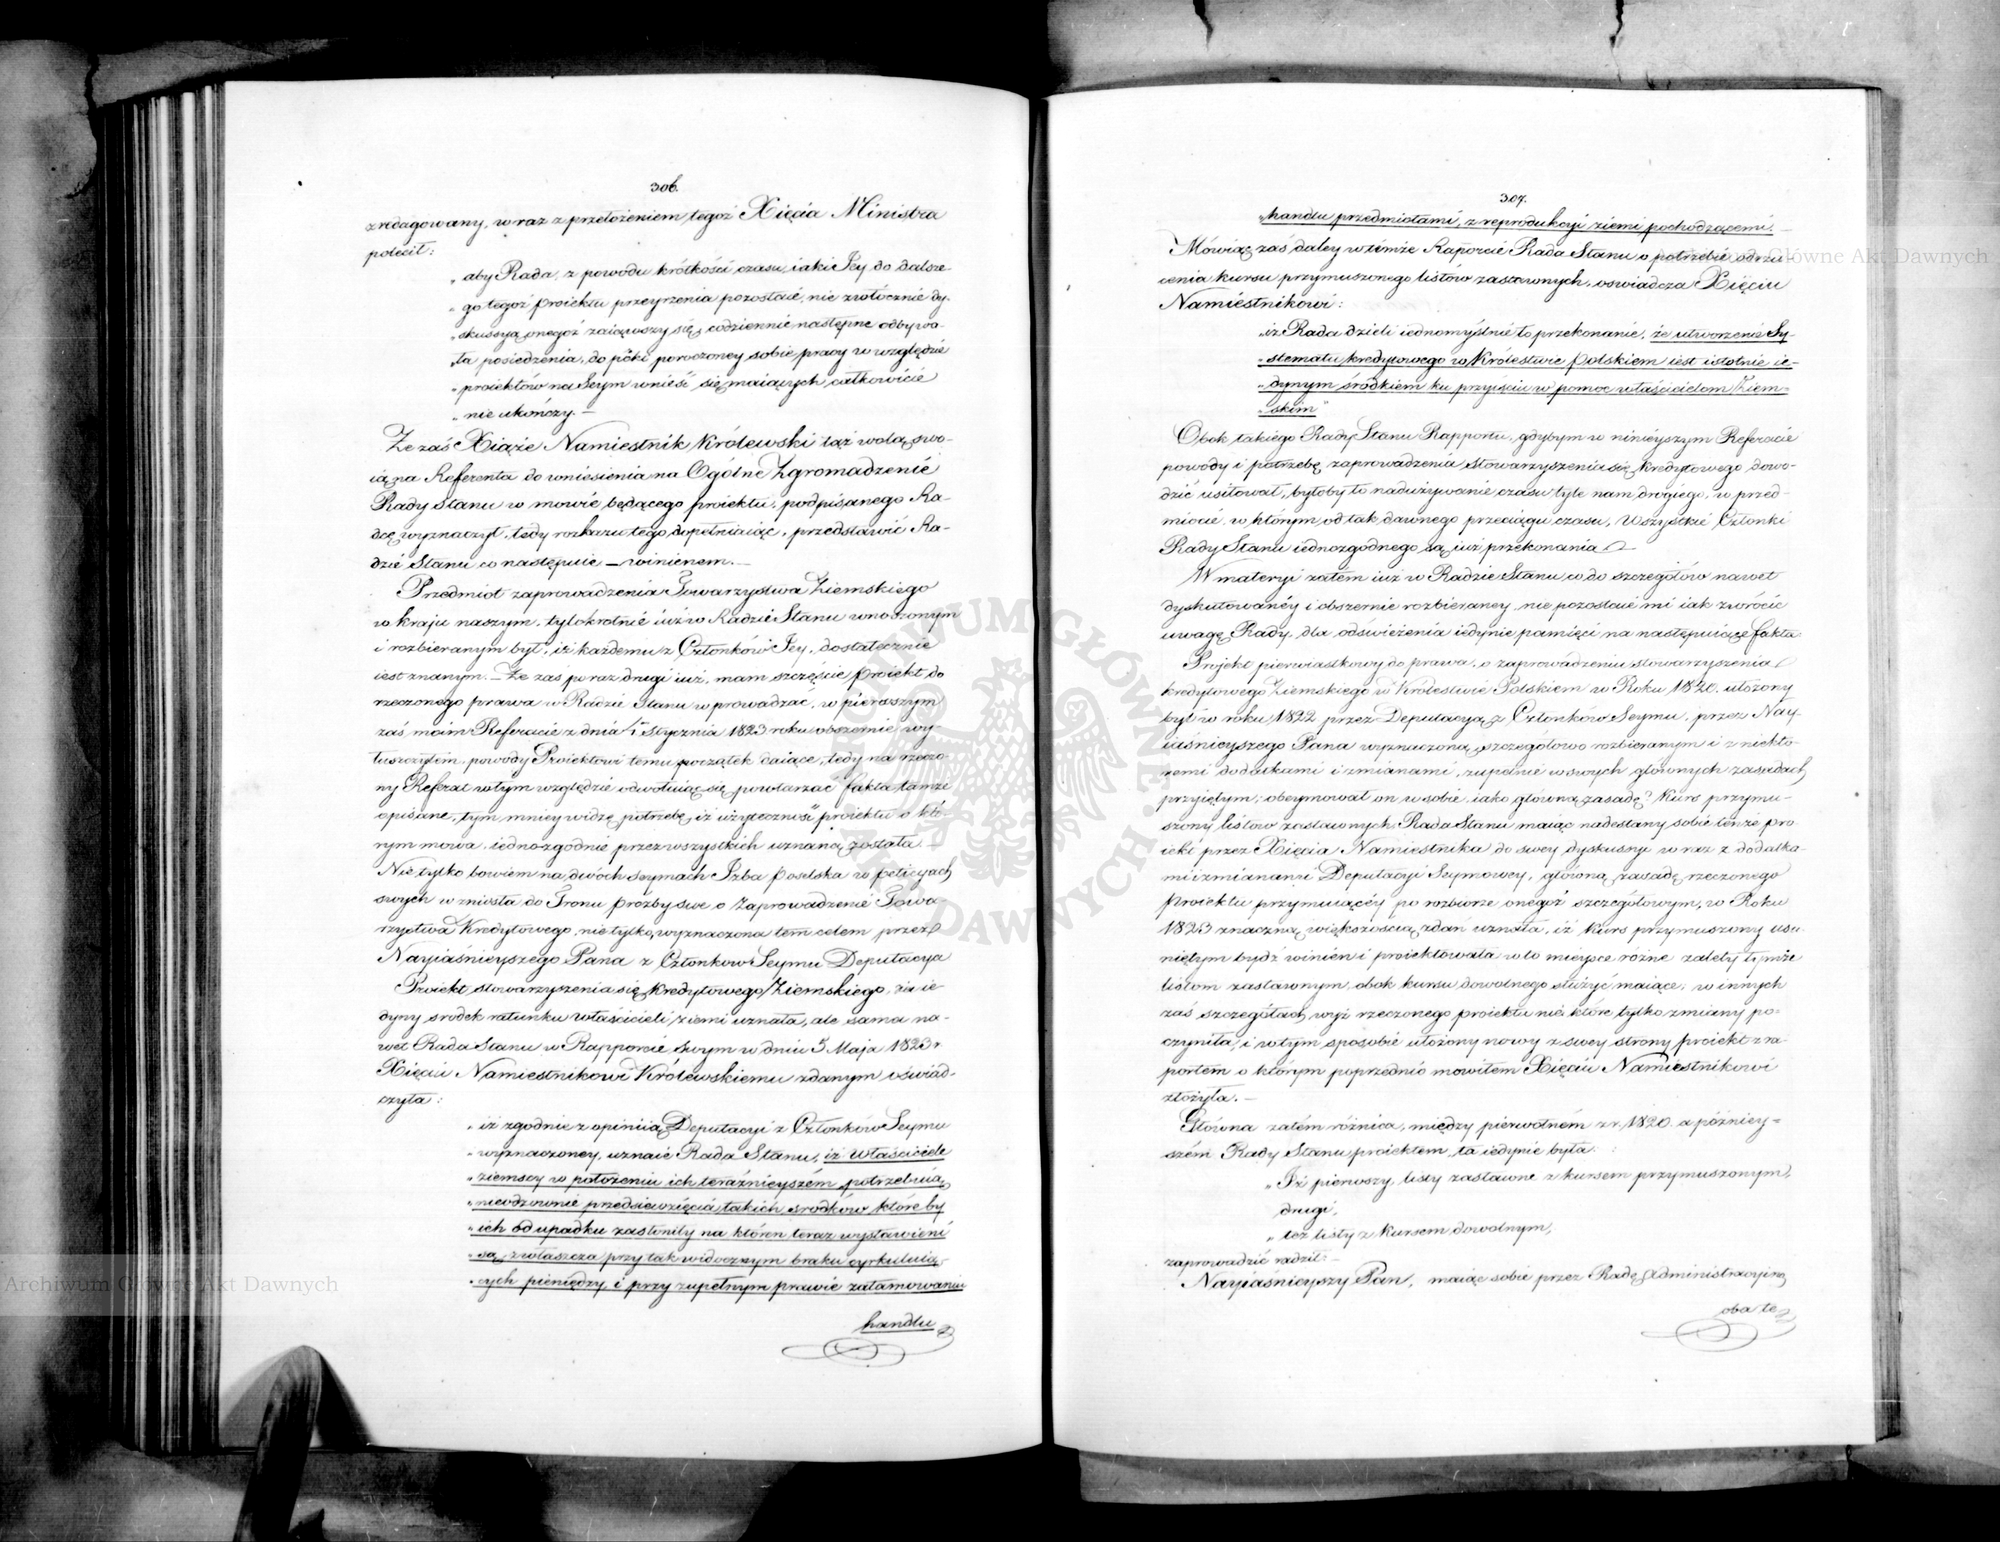 306.
zredagowany, wraz z przełożeniem tegoż Xięcia Ministra
polecił:
„aby Rada, z powodu krótkości czasu, iaki Jey do dalsze-
„go tegoż proiektu przeyrzenia pozostaie, nie zwłocznie dy-
„skussyą onegoż zaiąwszy się, codziennie następne odbywa-
„ła posiedzenia, do póki poruczoney sobie pracy w względzie
„proiektów na Seym wnieść się maiących całkowicie
„nie ukończy. —
Że zaś Xiąże Namiestnik Królewski taż wolą swo-
ią na Referenta do wniesienia na Ogólne Zgromadzenie
Rady Stanu w mowie będącego proiektu, podpisanego Ra-
dcę wyznaczył, tedy rozkazu tego dopełniaiąc, przedstawić Ra-
dzie Stanu co następuie — winienem. —
Przedmiot zaprowadzenia Towarzystwa Ziemskiego
w kraju naszym, tylokrotnie iuż w Radzie Stanu wnoszonym
i rozbieranym był, iż każdemu z Członków Jey, dostatecznie
iest znanym. — Że zaś po raz drugi iuż, mam szczęście proiekt do
rzeczonego prawa w Radzie Stanu wprowadzać, w pierwszym
zaś moim Referacie z dnia 1 Stycznia 1823 roku obszernie wy-
łuszczyłem powody Proiektowi temu początek daiące, tedy na rzeczo-
ny Referat w tym względzie odwołuiąc się, powtarzać fakta tamże
opisane, tym mniey widzę potrzebę, iż użyteczność proiektu o któ-
rym mowa, iednozgodnie przez wszystkich uznaną została. —
Nie tylko bowiem na dwóch seymach Izba Poselska w peticyach
swych wzniosła do Tronu prożby swe o Zaprowadzenie Towa-
rzystwa Kredytowego, nie tylko wyznaczona tem celem przez
Nayiaśnieyszego Pana z Członkow Seymu Deputacya
Proiekt stowarzyszenia się kredytowego Ziemskiego, za ie-
dyny srodek ratunku właścicieli ziemi uznała, ale sama na-
wet Rada Stanu w Rapporcie swym w dniu 5 Maja 1823 r
Xięciu Namiestnikowi Krolewskiemu zdanym oświad-
czyła:
„iż zgodnie z opiniią Deputacyi z Członków Seymu
„wyznaczoney, uznaie Rada Stanu, iż właściciele
„ziemscy w położeniu ich teraźnieyszém potrzebuią
„nieodzownie przedsięwzięcia takich srodków które by
„ich od upadku zasłoniły na któren teraz wystawieni
„są, zwłaszcza przy tak widocznym braku cyrkuluią-
„cych pieniędzy, i przy zupełnym prawie zatamowaniu
handlu
307.
„handlu przedmiotami, z reprodukcyi ziemi pochodzącemi. —
Mówiąc zaś daley w tymże Raporcie Rada Stanu o potrzebie odrzu-
cenia kursu przymuszonego listów zastawnych, oswiadcza Xięciu
Namiestnikowi:
„iż Rada dzieli iednomyślnie to przekonanie, że utworzenie Sy-
„stematu kredytowego w Królestwie Polskiem iest istotnie ie-
„dynym środkiem ku przyjściu w pomoc właścicielom Ziem-
„skim"
Obok takiego Rady Stanu Rapportu, gdybym w ninieyszym Referacie
powody i potrzebę zaprowadzenia stowarzyszenia się kredytowego dowo-
dzić usiłował, byłoby to nadużywanie czasu tyle nam drogiego, w przed-
miocie, w którym od tak dawnego przeciągu czasu, Wszystkie Członki
Rady Stanu iednozgodnego są iuż przekonania. —
W materyi zatem iuż w Radzie Stanu co do szczegółów nawet
dyskutowanéy i obszernie rozbieraney, nie pozostaie mi iak zwrócić
uwagę Rady, dla odświeżenia iedynie pamięci na następuiące fakta:
Projekt pierwiastkowy do prawa, o zaprowadzeniu stowarzyszenia
kredytowego Ziemskiego w Królestwie Polskiem w Roku 1820. ułożony
był w roku 1822 przez Deputacyą z Członków Seymu, przez Nay-
iaśnieyszego Pana wyznaczoną, szczegółowo rozbieranym i z niektó-
remi dodatkami i zmianami, zupełnie w swych głównych zasadach
przyjętym; obeymował on w sobie iako główną zasadę: Kurs przymu-
szony listów zastawnych. Rada Stanu maiąc nadesłany sobie tenże pro-
iekt przez Xięcia Namiestnika do swey dyskusyi wraz z dodatka-
mi i zmianami Deputacyi Seymowey, główną zasadę rzeczonego
Proiektu przyjmuiącéy po rozbiorze onegoż szczegółowym, w Roku
1823 znaczną większością zdań uznała, iż kurs przymuszony usu-
niętym bydź winien i proiektowała w to mieysce różne zalety tymże
listom zastawnym, obok kursu dowolnego służyć maiące; w innych
zaś szczegółach wyż rzeczonego proiektu nie które tylko zmiany po-
czyniła, i w tym sposobie ułożony nowy z swey strony proiekt z ra-
portem o którym poprzednio mowiłem Xięciu Namiestnikowi
złożyła. —
Główna zatém różnica, między pierwotném z r. 1820. a późniey-
szém Rady Stanu proiektem, ta iedynie była:
„Iż pierwszy, listy zastawne z kursem przymuszonym,
drugi,
„też listy z Kursem dowolnym,
zaprowadzić radził. —
Nayiaśnieyszy Pan, maiąc sobie przez Radę Administracyiną
oba te
ARCHIWUM GŁÓWNE AKT DAWNYCH
Archiwum Główne Akt Dawnych
Główne Akt Dawnych